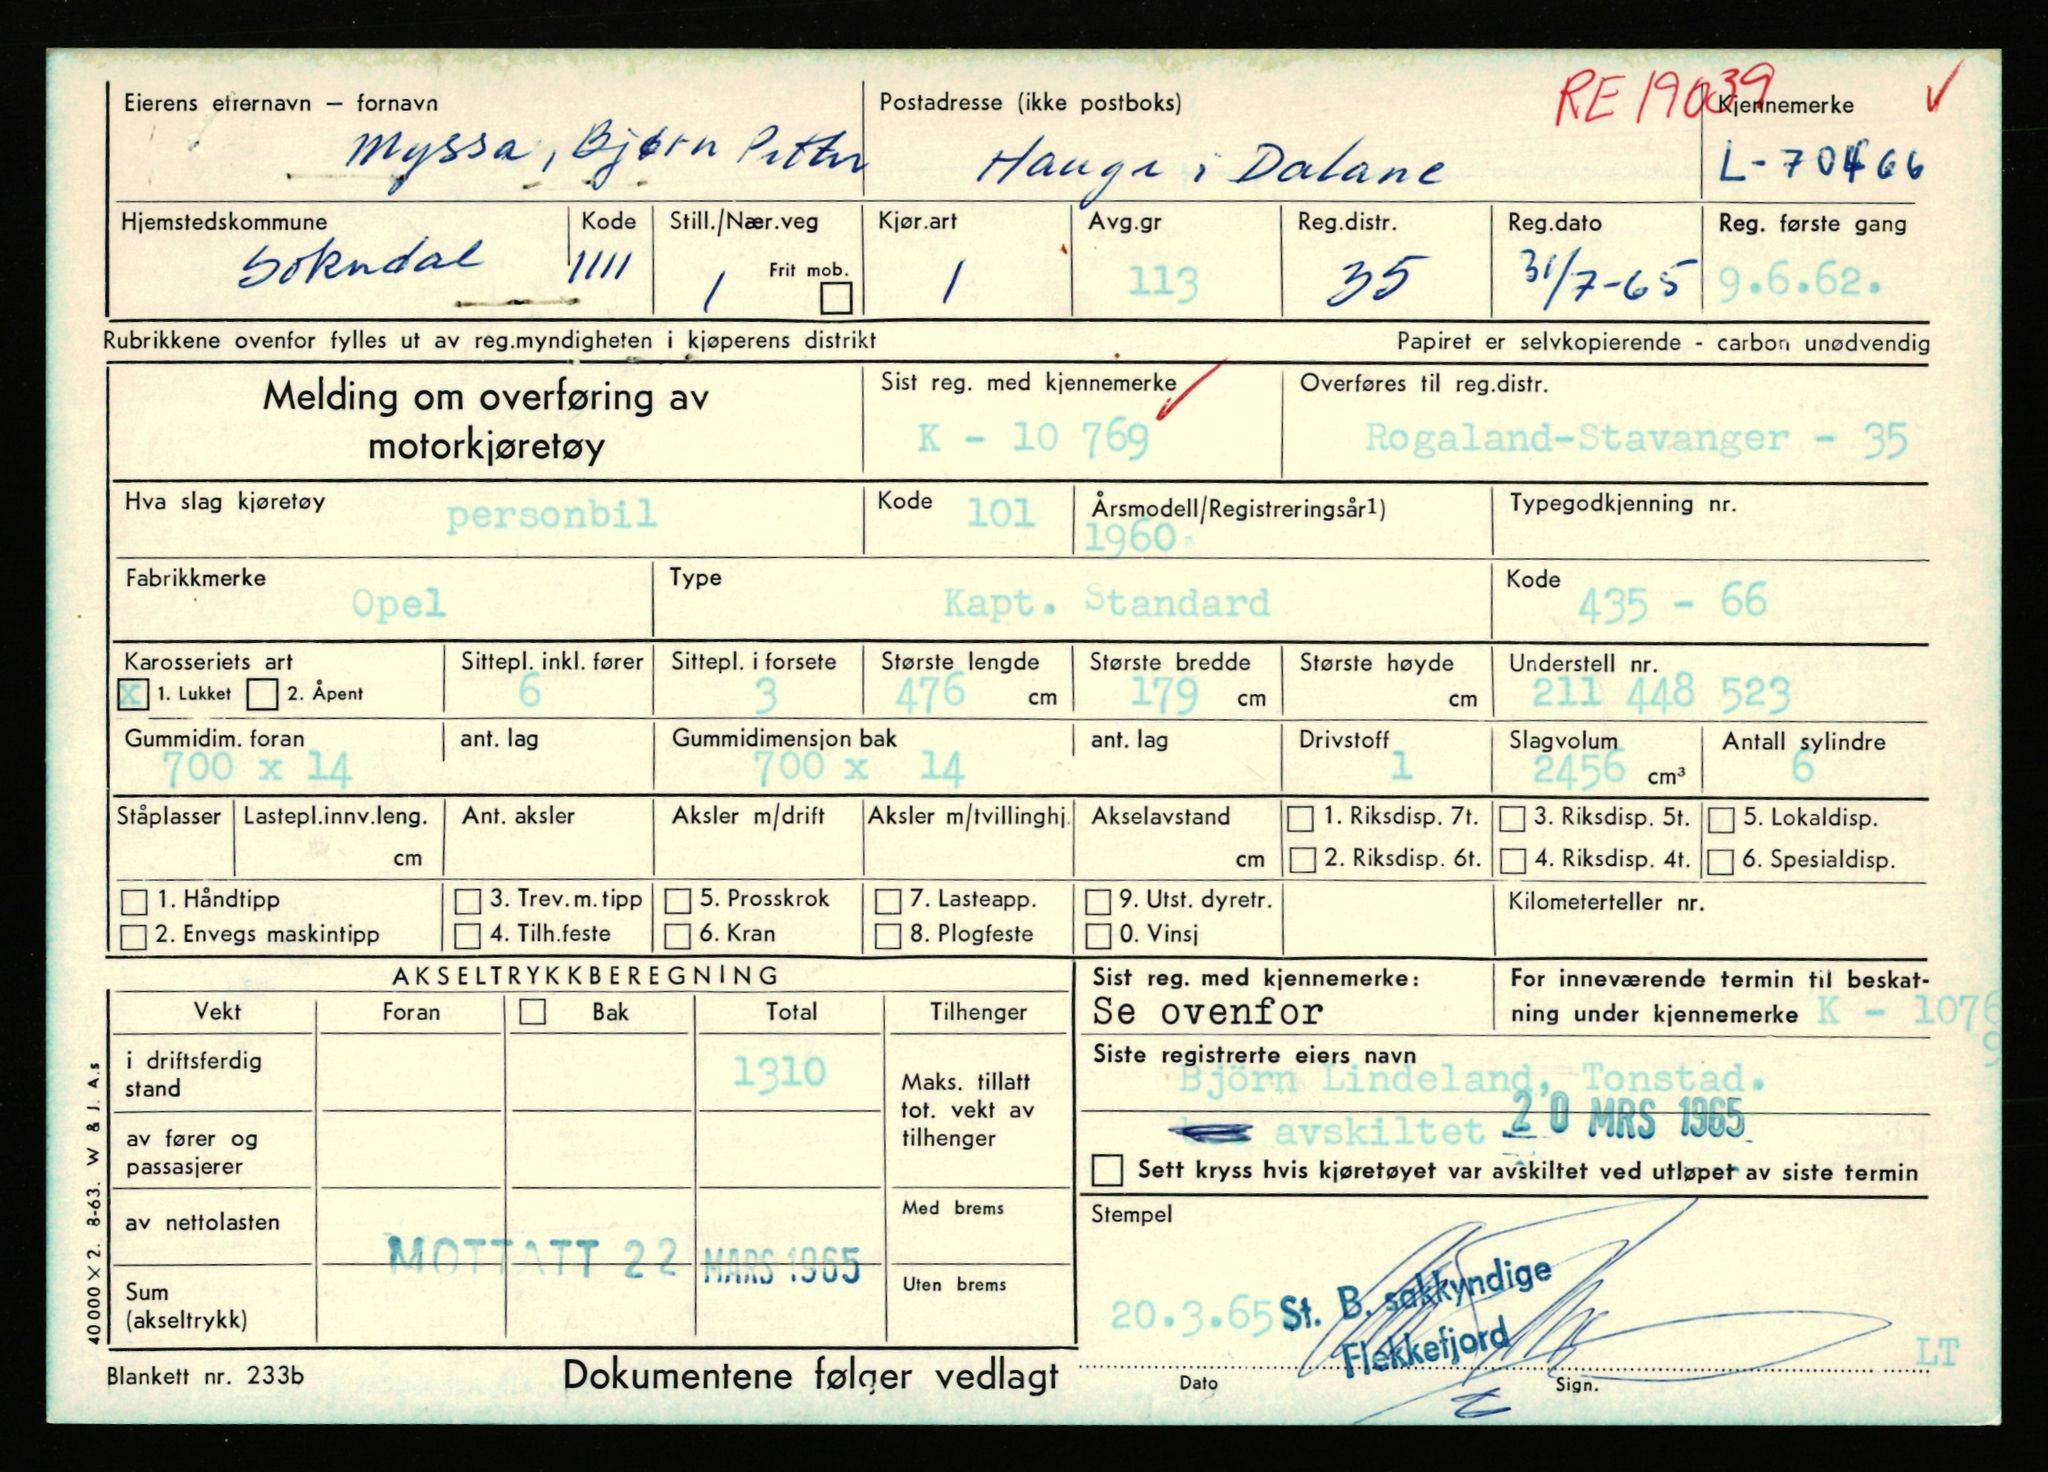 RE 19039
Eierens etternavn – fornavn Postadresse (ikke postboks) Kjennemerke
Myssa, Bjørn Petter Hauge i Dalane L-70466
Hjemstedskommune Kode Still./Nær.veg Kjør.art Avg.gr Reg.distr. Reg.dato Reg. første gang
Sokndal 1111 1 Frit mob. 1 113 35 31/7-65 9.6.62.
Rubrikkene ovenfor fylles ut av reg.myndigheten i kjøperens distrikt Papiret er selvkopierende - carbon unødvendig
Melding om overføring av Sist reg. med kjennemerke Overføres til reg.distr.
motorkjøretøy K - 10 769 Rogaland-Stavanger - 35
Hva slag kjøretøy personbil Kode 101 Årsmodell/Registreringsår1) Typegodkjenning nr.
1960
Fabrikkmerke Type Kode
Opel Kapt. Standard 435 - 66
Karosseriets art Sittepl. inkl. fører Sittepl. i forsete Største lengde Største bredde Største høyde Understell nr.
x 1. Lukket 2. Åpent 6 3 476 cm 179 cm cm 211 448 523
Gummidim. foran ant. lag Gummidimensjon bak ant. lag Drivstoff Slagvolum Antall sylindre
700 x 14 700 x 14 1 2456 cm³ 6
Ståplasser Lastepl.innv.leng. Ant. aksler Aksler m/drift Aksler m/tvillinghj. Akselavstand 1. Riksdisp. 7t. 3. Riksdisp. 5t. 5. Lokaldisp.
cm cm 2. Riksdisp. 6t. 4. Riksdisp. 4t. 6. Spesialdisp.
1. Håndtipp 3. Trev.m.tipp 5. Prosskrok 7. Lasteapp. 9. Utst. dyretr. Kilometerteller nr.
2. Envegs maskintipp 4. Tilh.feste 6. Kran 8. Plogfeste 0. Vinsj
AKSELTRYKKBEREGNING Sist reg. med kjennemerke: For inneværende termin til beskat-
Vekt Foran Bak Total Tilhenger Se ovenfor ning under kjennemerke K - 1076
9
i driftsferdig Siste registrerte eiers navn
stand 1310 Maks. tillatt Björn Lindeland, Tonstad.
tot. vekt av
av fører og tilhenger avskiltet 20 MRS 1965
passasjerer Sett kryss hvis kjøretøyet var avskiltet ved utløpet av siste termin
av nettolasten Med brems Stempel
MOTTATT 22 MARS 1965
Sum Uten brems St. B. sakkyndige
(akseltrykk) 20.3.65 Flekkefjord LT
Blankett nr. 233b Dokumentene følger vedlagt Dato Sign.
40 000 x 2. 8-63. W & J. A.s